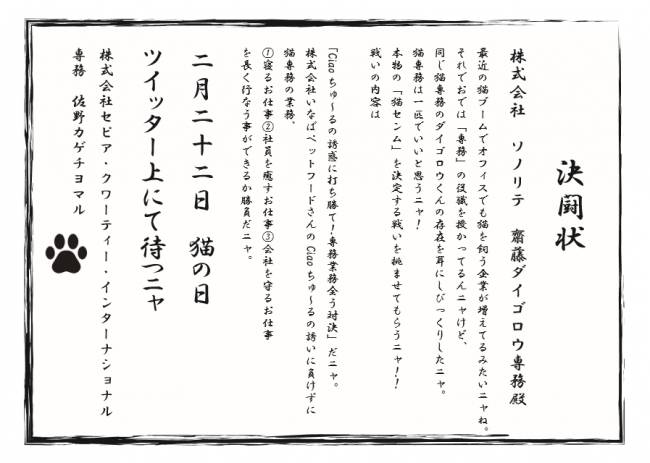 決闘状
株式会社 ソノリテ 齋藤ダイゴロウ専務殿
最近の猫ブームでオフィスでも猫を飼う企業が増えてるみたいニャね。
それでおでは「専務」の役職を授かってるんニャけど、
同じ猫専務のダイゴロウくんの存在を耳にしびっくりしたニャ。
猫専務は一匹でいいと思うニャ！
本物の「猫センム」を決定する戦いを挑ませてもらうニャ！！
戦いの内容は
「Ciaoちゅ～るの誘惑に打ち勝て！専務業務全う対決」だニャ。
株式会社いなばペットフードさんのCiaoちゅ～るの誘いに負けずに
猫専務の業務、
①寝るお仕事②社員を癒すお仕事③会社を守るお仕事
を長く行なう事ができるか勝負だニャ。
二月二十二日 猫の日
ツイッター上にて待つニャ
株式会社セビア・クワーティー・インターナショナル
専務 佐野カゲチヨマル